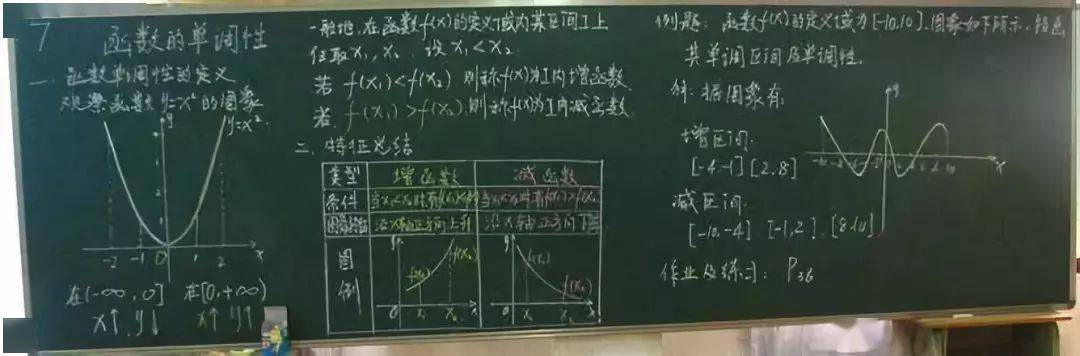 7
函数的单调性
一、函数单调性的定义
观察函数y=x²的图象
y
y=x²
-2 -1 0 1 2 x
在(-∞,0] 在[0,+∞)
x↑ y↓ x↑ y↑
一般地,在函数f(x)的定义域内某区间I上
任取x₁,x₂ 设x₁<x₂
若 f(x₁)<f(x₂) 则称f(x)为I内增函数
若 f(x₁)>f(x₂) 则称f(x)为I内减函数
二、特征总结
类型 增函数 减函数
条件
沿x轴正方向上升 沿x轴正方向下降
图例
y f(x₁) f(x₂) 0 x₁ x₂ x
y f(x₁) f(x₂) 0 x₁ x₂ x
例题:函数f(x)的定义域为[-10,10],图象如下所示,指出
其单调区间及单调性.
解:据图象有
增区间:
[-4,-1] [2,8]
减区间:
[-10,-4] [-1,2] [8,10]
y
x
作业及练习: P36